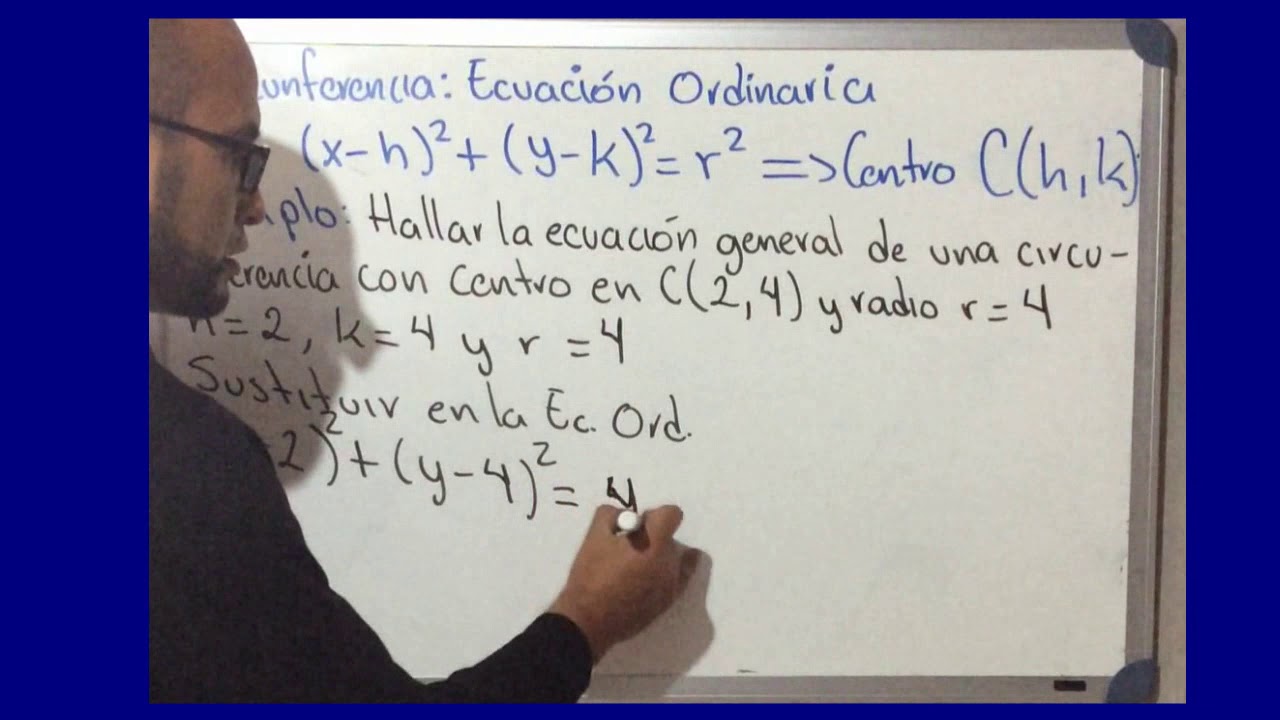 unferencia: Ecuación Ordinaria
(x-h)²+(y-k)²=r² => Centro C(h,k)
plo: Hallar la ecuación general de una circu-
erencia con centro en C(2,4) y radio r=4
h=2, k=4 y r=4
Sustituir en la Ec. Ord.
2)²+(y-4)²=4